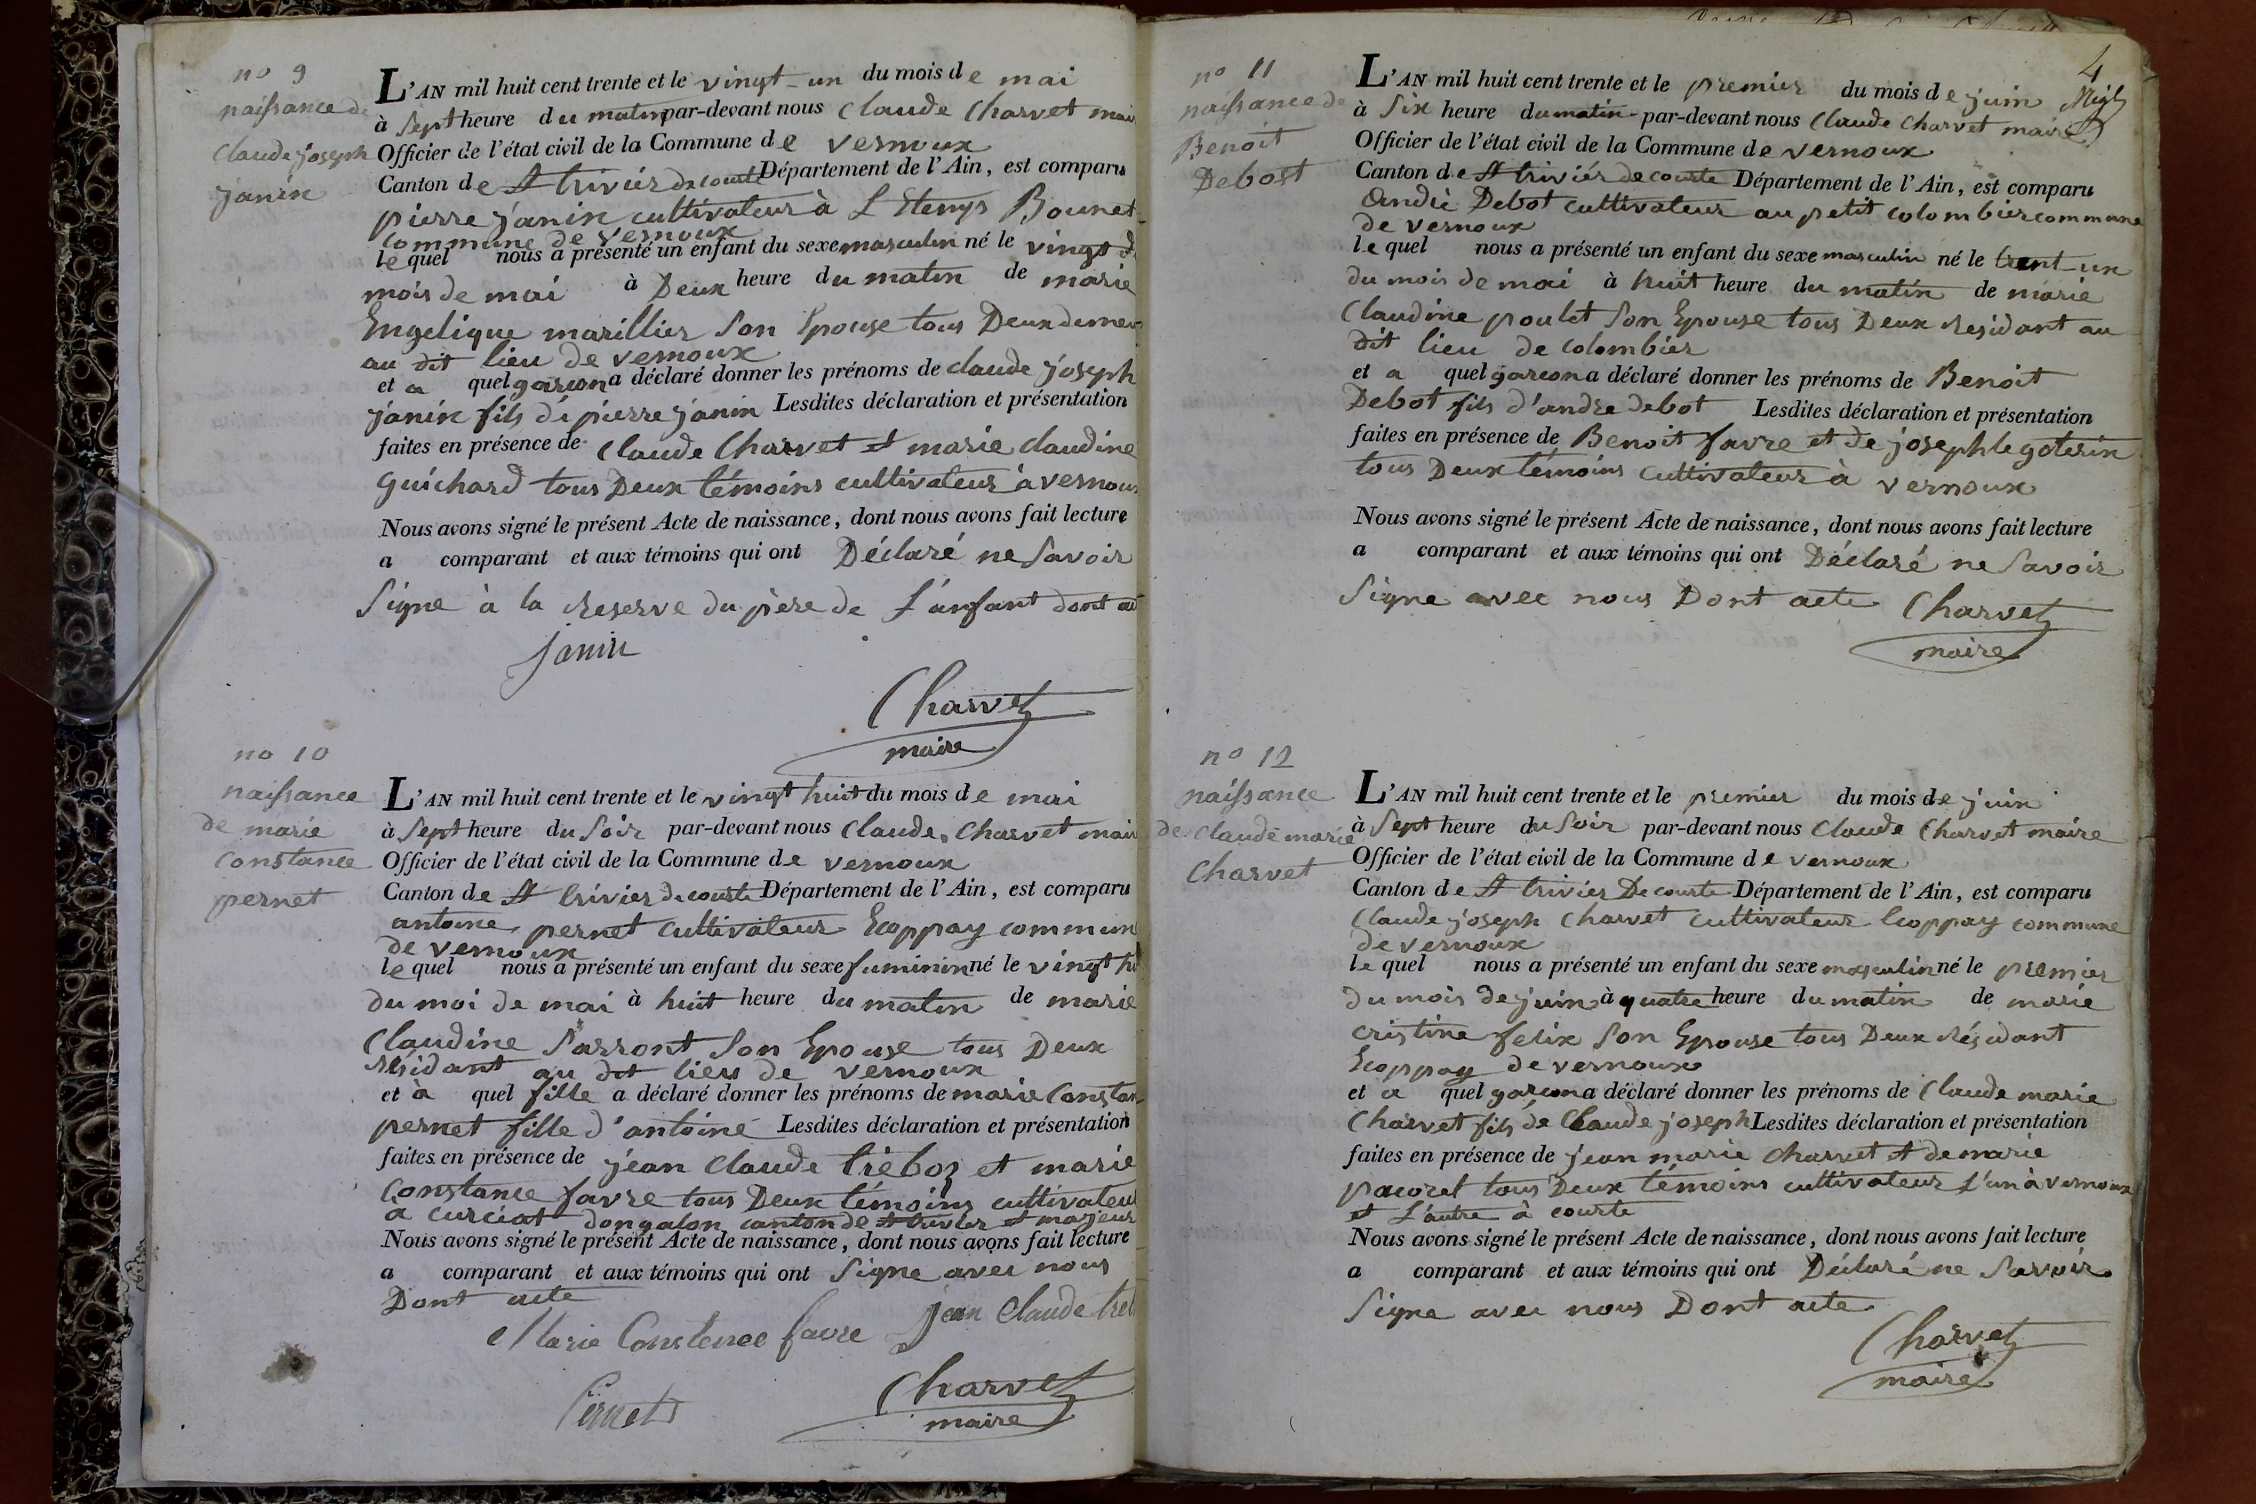 no 9
naissance de
Claude joseph
janin
L'AN mil huit cent trente et le vingt-un du mois de mai
à sept heure du matin par-devant nous Claude Charvet mair
Officier de l'état civil de la Commune de vernoux
Canton de St trivier de courte Département de l'Ain, est comparu
pierre janin cultivateur à L Etenys Bounet
commune de vernoux
le quel nous a présenté un enfant du sexe masculin né le vingt d
mois de mai à Deux heure du matin de marie
Engelique marillier son Epouse tous Deux demeu
au dit lieu de vernoux
et a quel garçon a déclaré donner les prénoms de claude joseph
janin fils de pierre janin Lesdites déclaration et présentation
faites en présence de Claude Charvet et marie claudine
guichard tous Deux témoins cultivateur à vernoux
Nous avons signé le présent Acte de naissance, dont nous avons fait lecture
a comparant et aux témoins qui ont Déclaré ne savoir
signe à la reserve du père de L'anfant dont act
janin
Charvet
maire
no 10
naissance
de marie
Constance
pernet
L'AN mil huit cent trente et le vingt huit du mois de mai
à sept heure du soir par-devant nous Claude Charvet mair
Officier de l'état civil de la Commune de vernoux
Canton de St trivier de courte Département de l'Ain, est comparu
antoine pernet cultivateur Ecoppay commun
de vernoux
le quel nous a présenté un enfant du sexe fuminin né le vingt hu
du moi de mai à huit heure du matin de marie
Claudine Sarront son Epouse tous Deux
résidant au dit lieu de vernoux
et à quel fille a déclaré donner les prénoms de marie Constan
pernet fille d'antoine Lesdites déclaration et présentation
faites en présence de jean claude treboz et marie
Constance favre tous Deux témoins cultivateur
a curciat dongalon canton de St trivier et majeur
Nous avons signé le présent Acte de naissance, dont nous avons fait lecture
a comparant et aux témoins qui ont signe avec nous
Dont acte
jean claude treb
Marie Constence favre
Pernet
Charvet
maire
4
no 11
naissance de
Benoit
Debost
L'AN mil huit cent trente et le premier du mois de juin
à six heure du matin par-devant nous Claude Charvet maire
Officier de l'état civil de la Commune de vernoux
Canton de St triviér de courte Département de l'Ain, est comparu
André Debot cultivateur au petit colombier commune
de vernoux
le quel nous a présenté un enfant du sexe masculin né le trent-un
du mois de mai à huit heure du matin de marie
Claudine poulet son Epouse tous Deux residant au
dit lieu de colombier
et a quel garcon a déclaré donner les prénoms de Benoit
Debot fils d'andre debot Lesdites déclaration et présentation
faites en présence de Benoit favre et de joseph le goterin
tous Deux témoins cultivateur à vernoux
Nous avons signé le présent Acte de naissance, dont nous avons fait lecture
a comparant et aux témoins qui ont Déclaré ne savoir
signe avec nous Dont acte Charvet
maire
no 12
naissance
de Claude marie
Charvet
L'AN mil huit cent trente et le premier du mois de juin
à sept heure du soir par-devant nous Claude Charvet maire
Officier de l'état civil de la Commune de vernoux
Canton de St trivier De courte Département de l'Ain, est comparu
Claude joseph Charvet cultivateur Ecoppay commune
de vernoux
le quel nous a présenté un enfant du sexe masculin né le premier
du mois de juin à quatre heure du matin de marie
cristine felix son Epouse tous Deux résidant
Ecoppay de vernoux
et a quel garcon a déclaré donner les prénoms de Claude marie
Charvet fils de Claude joseph Lesdites déclaration et présentation
faites en présence de jean marie charvet et de marie
pacoret tous Deux témoins cultivateur L'un à vernoux
et L'autre à courte
Nous avons signé le présent Acte de naissance, dont nous avons fait lecture
a comparant et aux témoins qui ont Déclaré ne savoir
signe avec nous Dont acte
Charvet
maire